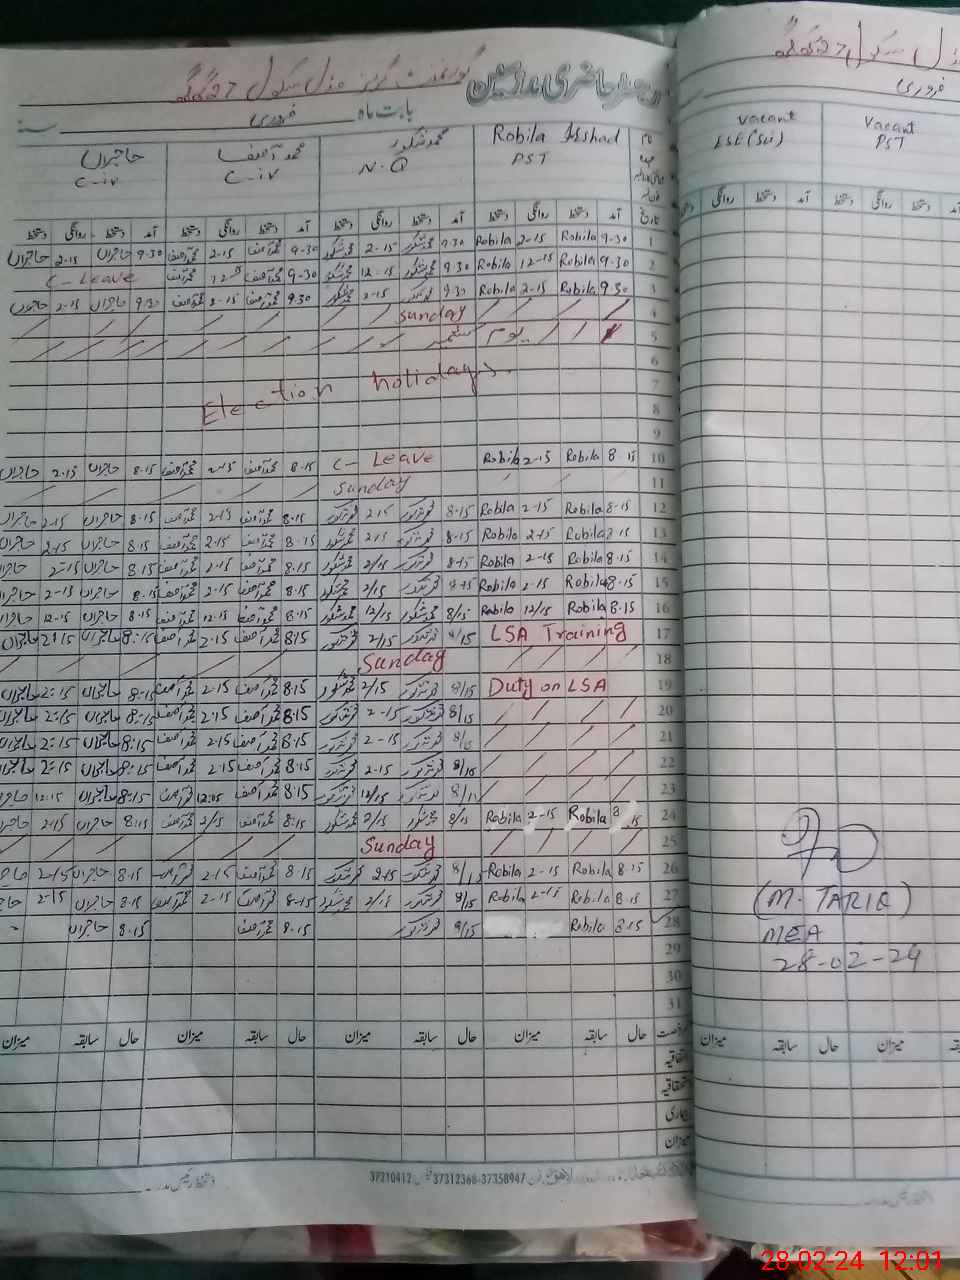 گورنمنٹ گرلز مڈل سکول 27 گگ
رجسٹر حاضری مدرسین
بابت ماہ فروری
Robila Arshad
PST
محمد شکور
N.Q
محمد آصف
C-iv
حاجراں
C-iv
تاریخ آمد دستخط روانگی دستخط آمد دستخط روانگی دستخط آمد دستخط روانگی دستخط آمد دستخط روانگی دستخط
1 9-30 Robila 2-15 Robila 9.30 محمد شکور 2-15 محمد شکور 9-30 محمد آصف 2-15 محمد آصف 9-30 حاجراں 2-15 حاجراں
2 9-30 Robila 12-15 Robila 9.30 محمد شکور 12-15 محمد شکور 9-30 محمد آصف محمد آصف C-Leave
3 9.30 Robila 2-15 Robila 9.30 محمد شکور 2-15 محمد شکور 9.30 محمد آصف 2-15 محمد آصف 9.30 حاجراں 2-15 حاجراں
4 Sunday
5 یوم کشمیر
6
7 Election holidays.
8
9
10 8.15 Robila 2-15 Robila C-Leave 8.15 محمد آصف محمد آصف 8.15 حاجراں 2.15 حاجراں
11 Sunday
12 8-15 Robila 2-15 Robila 8-15 محمد شکور 2.15 محمد شکور 8.15 محمد آصف 2-15 محمد آصف 8.15 حاجراں 2-15 حاجراں
13 8.15 Robila 2-15 Robila 8-15 محمد شکور 2.15 محمد شکور 8.15 محمد آصف 2.15 محمد آصف 8.15 حاجراں 2.15 حاجراں
14 8.15 Robila 2-15 Robila 8-15 محمد شکور 2/15 محمد شکور 8.15 محمد آصف 2-15 محمد آصف 8.15 حاجراں 2-15 حاجراں
15 8-15 Robila 2-15 Robila 8-15 محمد شکور 2/15 محمد شکور 8.15 محمد آصف 2-15 محمد آصف 8.15 حاجراں 2-15 حاجراں
16 8.15 Robila 12/15 Robila 8/15 محمد شکور 12/15 محمد شکور 8.15 محمد آصف 12-15 محمد آصف 8.15 حاجراں 12-15 حاجراں
17 LSA Training 8/15 محمد شکور 2/15 محمد شکور 8.15 محمد آصف 2-15 محمد آصف 8:15 حاجراں 2:15 حاجراں
18 Sunday
19 Duty on LSA 8/15 محمد شکور 2/15 محمد شکور 8.15 محمد آصف 2-15 محمد آصف 8:15 حاجراں 2:15 حاجراں
20 8/15 محمد شکور 2-15 محمد شکور 8.15 محمد آصف 2.15 محمد آصف 8:15 حاجراں 2:15 حاجراں
21 محمد شکور 2-15 محمد شکور 8.15 محمد آصف 2.15 محمد آصف 8:15 حاجراں 2:15 حاجراں
22 8/15 محمد شکور 2-15 محمد شکور 8.15 محمد آصف 2.15 محمد آصف 8:15 حاجراں 2:15 حاجراں
23 محمد شکور 12/15 محمد شکور 8.15 محمد آصف محمد آصف 8:15 حاجراں 12:15
24 8.15 Robila 2-15 Robila 8/15 محمد شکور 2/15 محمد شکور 8.15 محمد آصف 2/15 محمد آصف 8.15 حاجراں 2.15
25 Sunday
26 8.15 Robila 2-15 Robila 8/15 محمد شکور 2.15 محمد شکور 8.15 محمد آصف 2.15 محمد آصف 8.15 حاجراں 2.15
27 8.15 Robila 2-15 Robila 8/15 محمد شکور 2/15 محمد شکور 8-15 محمد آصف 2-15 محمد آصف 8.15 حاجراں 2-15
28 8.15 Robila 8/15 محمد شکور 8.15 محمد آصف 8.15 حاجراں
29
30
31
حال سابقہ میزان حال سابقہ میزان حال سابقہ میزان حال سابقہ میزان
اتفاقیہ
بیماری
میزان
37210412 37312368-37358947
فروری
Vacant
PST
Vacant
ESE (Sci)
آمد دستخط روانگی دستخط
(M. TARIQ)
MEA
28-02-24
میزان حال سابقہ میزان
28-02-24 12:01